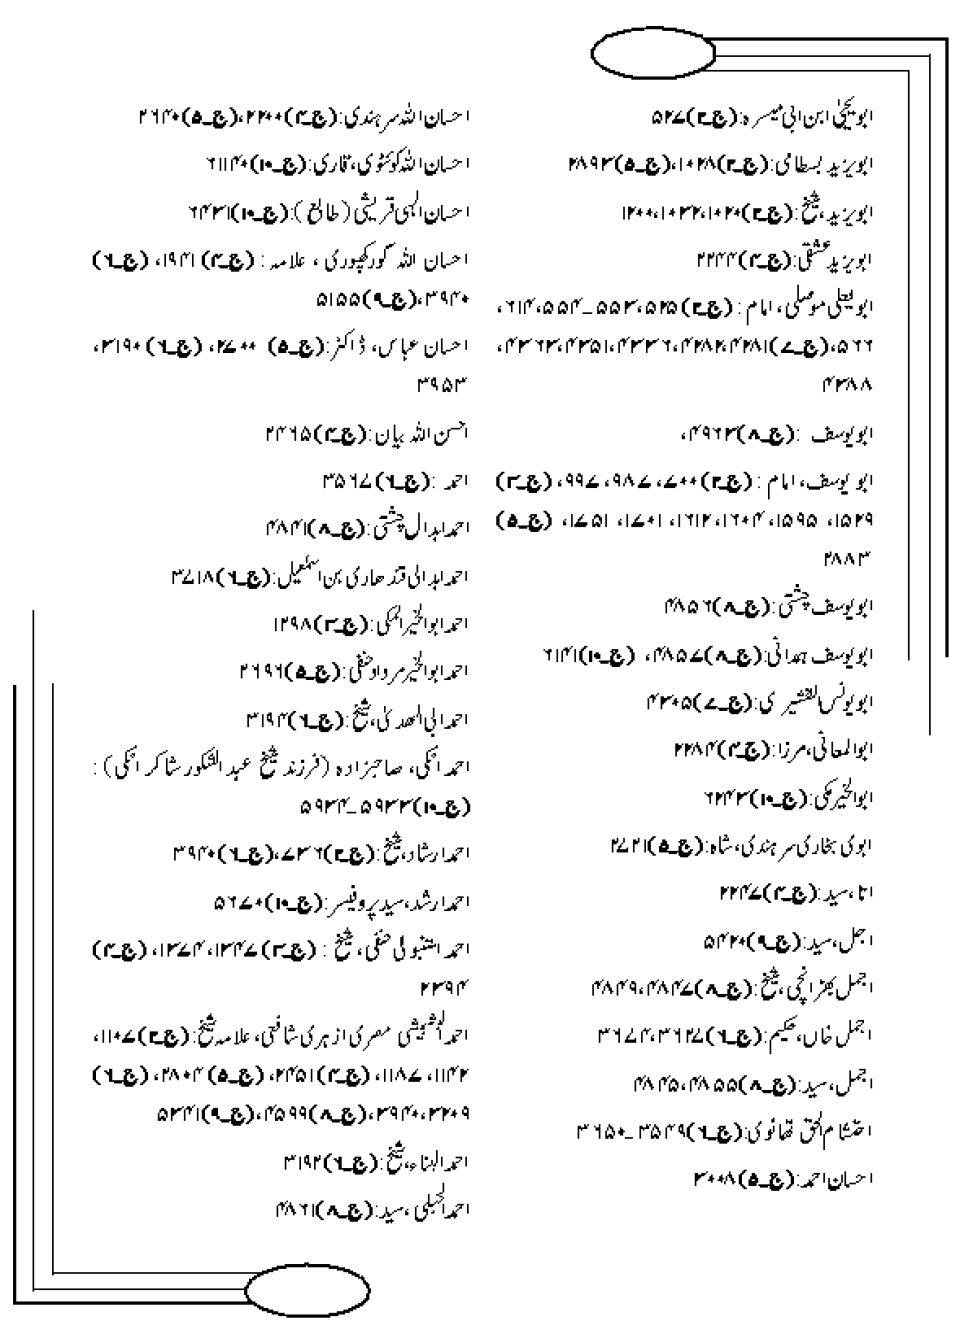 ابو یحییٰ ابن ابی میسرہ:(ج_۲)۵۲۷
ابو یزید بسطامی:(ج_۲)۱۰۲۸،(ج_۵)۲۸۹۳
ابو یزید، شیخ:(ج_۲)۱۰۲۰،۱۰۳۲،۱۲۰۰
ابو یزید عشقی:(ج_۴)۲۲۴۴
ابو یعلی موصلی، امام:(ج_۲)۵۲۵،۵۵۳_۵۵۴،۶۱۴،
۵۶۶،(ج_۷)۴۲۸۱،۴۲۸۲،۴۳۳۶،۴۳۵۱،۴۳۶۳،
۴۳۸۸
ابو یوسف :(ج_۸)۴۹۶۳،
ابو یوسف، امام:(ج_۲)۷۰۰، ۹۸۷، ۹۹۷، (ج_۳)
۱۵۲۹، ۱۵۹۵، ۱۶۰۴، ۱۶۱۲، ۱۷۰۱، ۱۷۵۱، (ج_۵)
۲۸۸۳
ابو یوسف چشتی:(ج_۸)۴۸۵۶
ابو یوسف ہمدانی:(ج_۸)۴۸۵۷، (ج_۱۰)۶۱۴۱
ابو یونس القشیری:(ج_۷)۴۳۰۵
ابوالمعانی، مرزا:(ج_۴)۲۲۸۴
ابوالخیر مکی:(ج_۱۰)۶۲۴۳
ابوی بخاری سرہندی، شاہ:(ج_۵)۲۷۲۱
اتا، سید:(ج_۴)۲۲۴۷
اجل، سید:(ج_۹)۵۴۲۰
اجمل بھڑائچی، شیخ:(ج_۸)۴۸۴۷،۴۸۴۹
اجمل خاں، حکیم:(ج_۶)۳۶۲۷،۳۶۷۴
اجمل، سید:(ج_۸)۴۸۵۵،۴۸۴۵
احتشام الحق تھانوی:(ج_۶)۳۵۴۹_۳۶۵۰
احسان احمد:(ج_۵)۳۰۰۸
احسان اللہ سرہندی:(ج_۴)۲۲۰۰،(ج_۵)۲۶۴۰
احسان اللہ کوئٹوی، قاری:(ج_۱۰)۶۱۱۴۰
احسان الہی قریشی (طابع):(ج_۱۰)۶۴۳۱
احسان اللہ گورکھپوری، علامہ:(ج_۴)۱۹۴۱، (ج_۶)
۳۹۴۰،(ج_۹)۵۱۵۵
احسان عباس، ڈاکٹر:(ج_۵) ۲۷۰۰، (ج_۶)۳۱۹۰،
۳۹۵۳
احسن اللہ بیان:(ج_۴)۲۴۶۵
احمد :(ج_۶)۳۵۶۷
احمد ابدال چشتی:(ج_۸)۴۸۴۱
احمد ابدالی قندھاری بن اسمٰعیل:(ج_۶)۳۷۱۸
احمد ابوالخیر المکی:(ج_۳)۱۲۹۸
احمد ابوالخیر مرداد حنفی:(ج_۵)۲۶۹۶
احمد ابی الھدیٰ، شیخ:(ج_۶)۳۱۹۴
احمد اٹکی، صاحبزادہ (فرزند شیخ عبدالشکور شاکر اٹکی):
(ج_۱۰)۵۹۳۳_۵۹۳۴
احمد ارشاد، شیخ:(ج_۲)۷۳۶،(ج_۶)۳۹۴۰
احمد ارشد، سید پروفیسر:(ج_۱۰)۵۶۷۰
احمد حنفی، شیخ :(ج_۳)۱۳۴۷،۱۳۷۴، (ج_۴)
۲۳۹۴
احمد مصری ازہری شافعی، علامہ شیخ:(ج_۳)۱۱۰۷،
۱۱۴۲، ۱۱۸۷، (ج_۴)۲۴۵۱، (ج_۵)۲۸۰۴، (ج_۶)
۳۲۰۹،۳۹۴۰،(ج_۸)۴۵۹۹،(ج_۹)۵۳۴۱
احمد البناء، شیخ:(ج_۶)۳۱۹۲
احمد الجیلی، سید:(ج_۸)۴۸۶۱